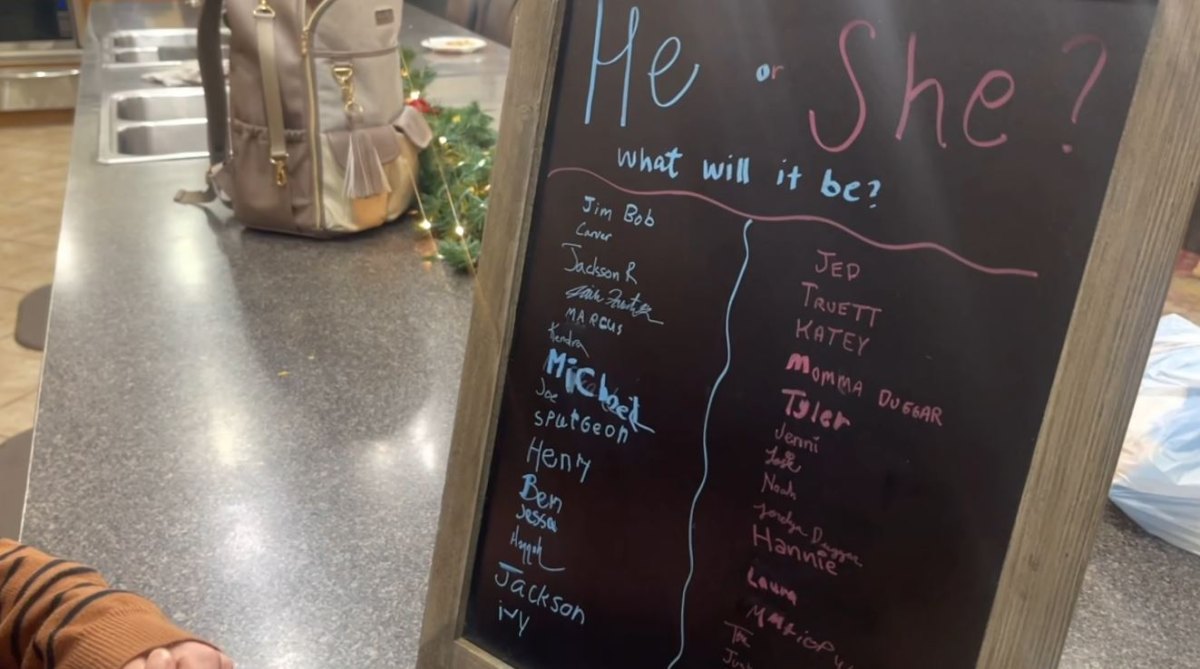 He or She?
what will it be?
Jim Bob
Carver
Jackson R
MARCUS
Kendra
Michael
Joe
SPURGEON
Henry
Ben
Jessa
Hannah
Jackson
ivy
JED
TRUETT
KATEY
MOMMA DUGGAR
Tyler
Jenni
Noah
Jordyn Duggar
Hannie
Laura